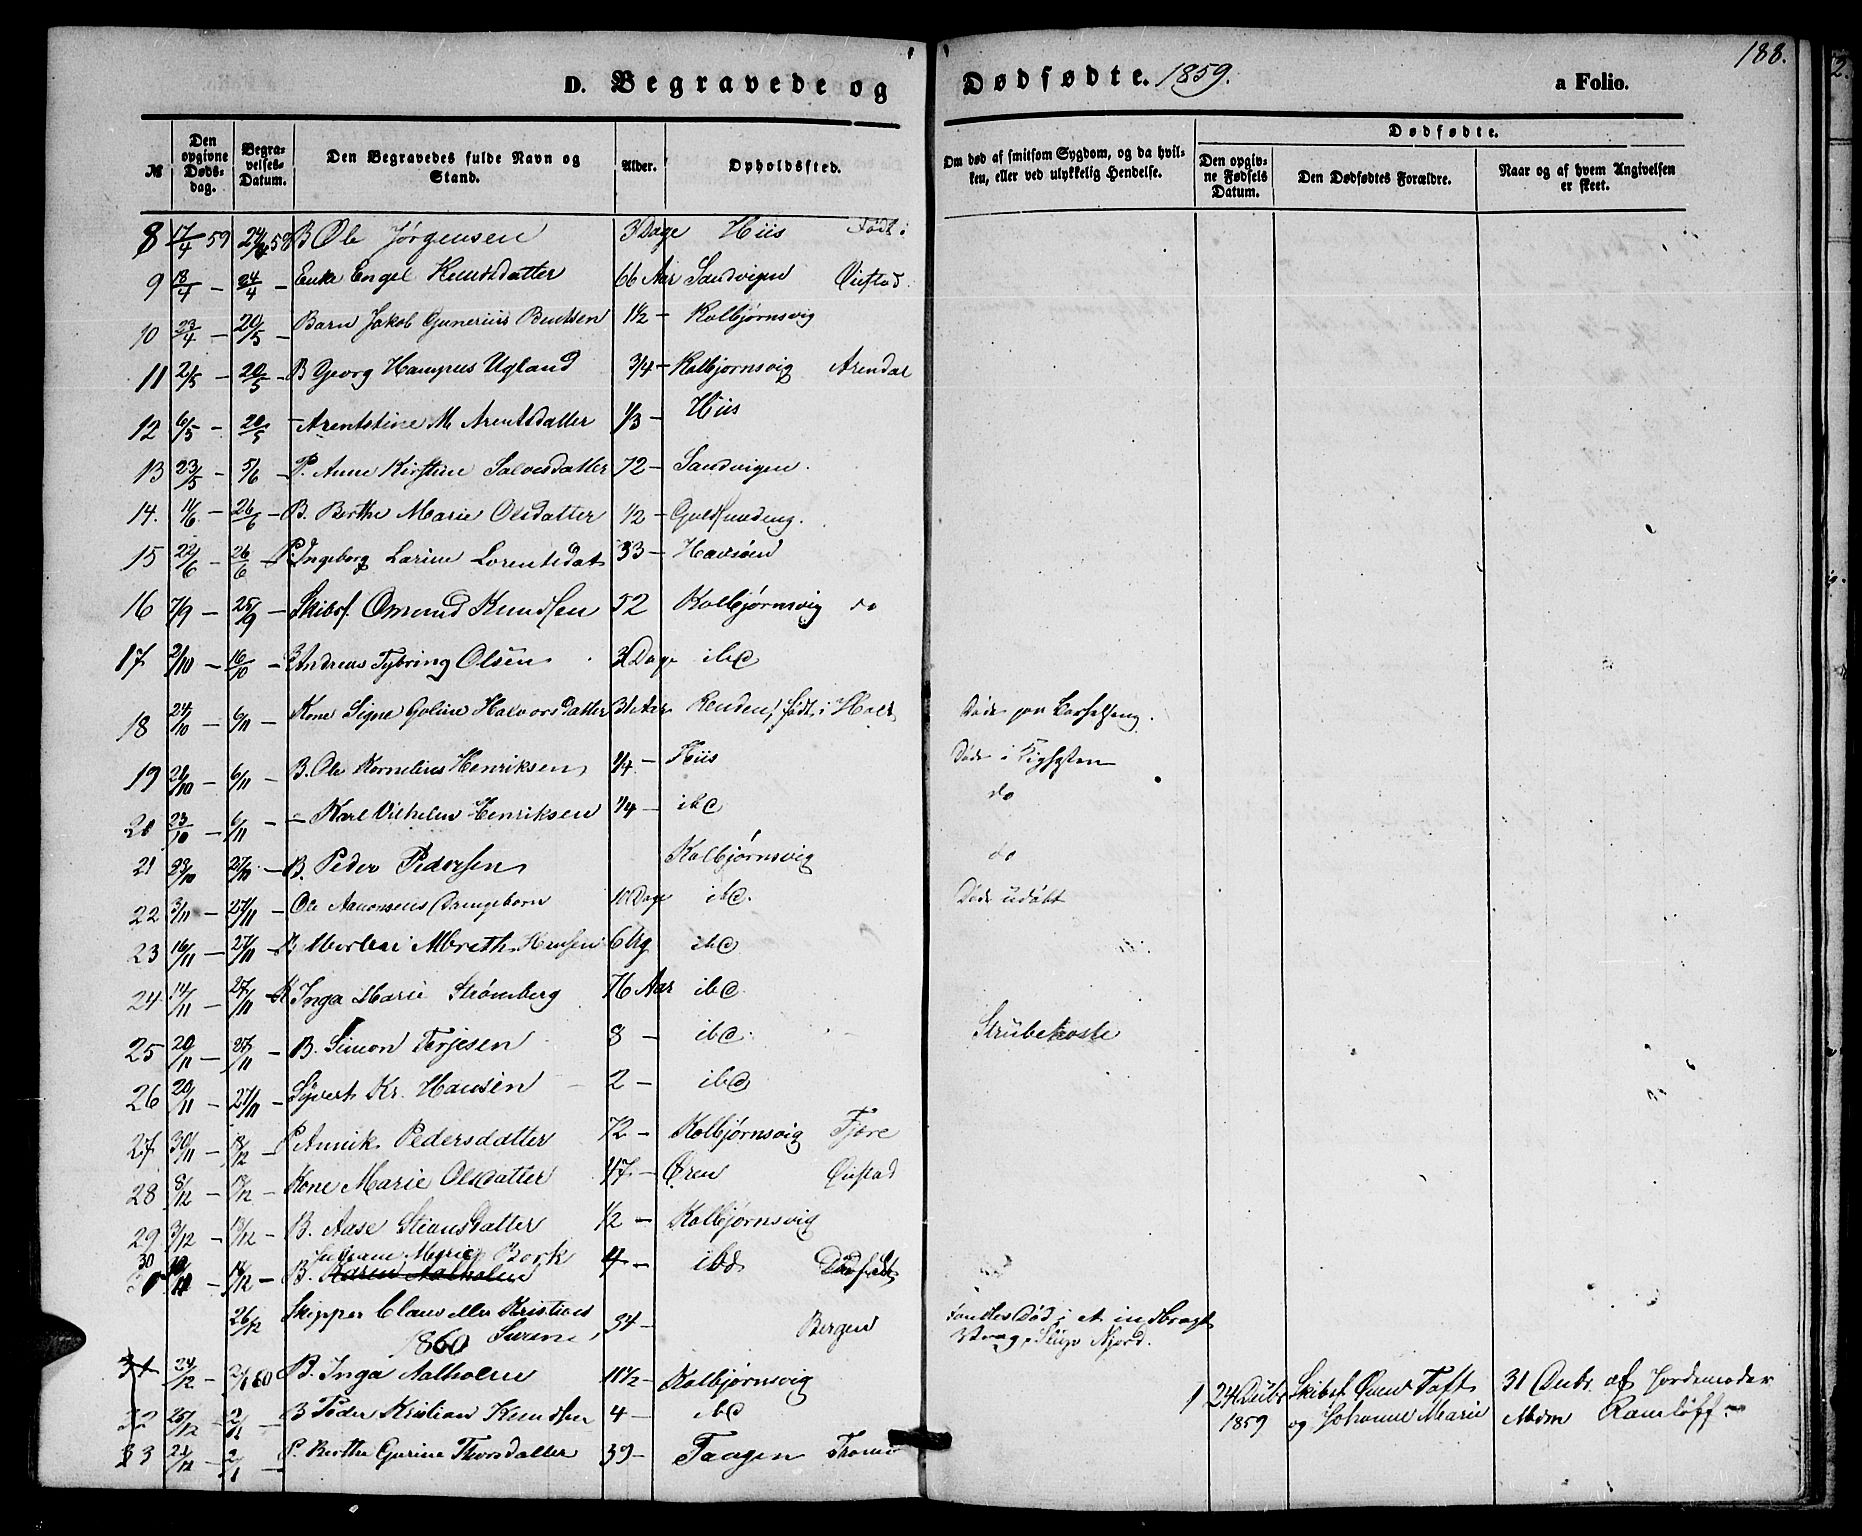 188.
D. Begravede og Dødfødte. 1859. a Folio.
№ Den opgivne Dødsdag. Begravelses-Datum. Den Begravedes fulde Navn og Stand. Alder. Opholdssted. Om død af smitsom Sygdom, og da hvilken, eller ved ulykkelig Hendelse. Dødfødte. Den opgivne Fødsels Datum. Den Dødfødtes Forældre. Naar og af hvem Angivelsen er skeet.
8 17/4 59 24/4 59 B Ole Jørgensen 3 Dage Hiis Født i
9 18/4 - 24/4 - Enke Engel Knutsdatter 66 Aar Sandvigen Øiestad.
10 23/4 - 20/5 - Barn Jakob Gunerius Bentsen 1 1/2 - Kolbjørnsvig
11 2/5 - 20/5 - B Georg Hampus Ugland 3/4 - Kolbjørnsvig Arendal
12 6/5 - 20/5 - Arentstine M Arentsdatter 1/3 - Hiis
13 23/5 - 5/6 - P. Anne Kirstine Salvesdatter 72 - Sandvigen.
14. 14/6 - 26/6 - B. Berthe Marie Olsdatter 1/2 -
15 22/6 - 26/6 - P. Ingeborg Larine Lorentsdat 33 - Havsøen
16 7/9 - 25/9 - Skibsf. Omund Knudsen 52 Kolbjørnsvig do
17 2/10 - 16/10 - B Andreas Tybring Olsen 3 Dage ibd
18 24/10 - 6/11 - Kone Signe Goline Halvorsdatter 31 Aar Renden, født i Holt Døde paa Barselseng.
19 21/10 - 6/11 - B. Ole Kornelius Henriksen 1/4 - Hiis Døde i Kighosten
20 23/10 - 6/11 - - Karl Vilhelm Henriksen 1/4 - ibd do
21 23/10 27/10 - B. Peder Pedersen Kolbjørnsvig do
22 3/11 - 27/11 - Ole Aanonsens Drengebarn 10 Dage ibd. Døde udøbt
23 16/11 - 27/11 - Albreth Hansen 6 Ug ibd
24 14/11 - 27/11 - Inga Marie Strømberg 76 Aar ibd
25 20/11 - 27/11 - B. Simon Terjesen 8 - ibd. Strubehoste
26 20/11 - 27/11 - Syvert Kr. Hansen 2 - ibd
27 30/11 - 18/12 - P Annik. Pedersdatter 72 - Kolbjørnsvig Fjære
28 8/12 - 18/12 - Kone Marie Olsdatter 47 - Øren Øiestad
29 3/12 - 18/12 - B. Aase Stiansdatter 1/2 - Kolbjørnsvig
30 Juliane Marie Bork
18/12 - B. Karen Aalholm 4 - ibd
26/12 Skipper Claus eller Kristian 34 - Bergen Fandtes Død i et indbragt
1860 Vrag, Slup Njord.
31 24/12 - 2/1 60 B. Inga Aalholm 11 1/2 - Kolbjørnsvig 1 24 Decbr Skibst. Toft 31 Decbr. af Jordemoder
32 25/12 - 2/1 - B Peder Kristian Knudsen 4 - ibd 1859 og Johanne Marie Mdm Ramløff.
33 22/12 - 2/1 - P. Berthe Gurine Thorsdatter 39 - Taagen Tromø